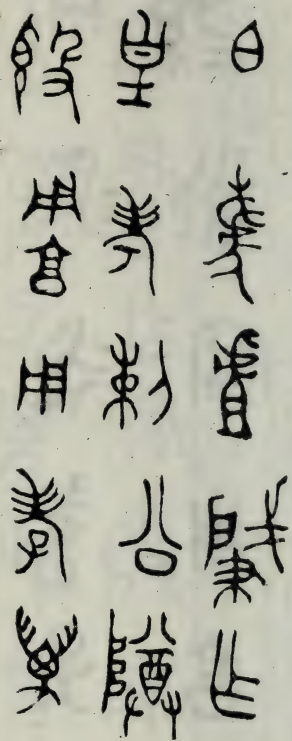 日肇乍
皇考剌公尊
𣪘用享用孝萬